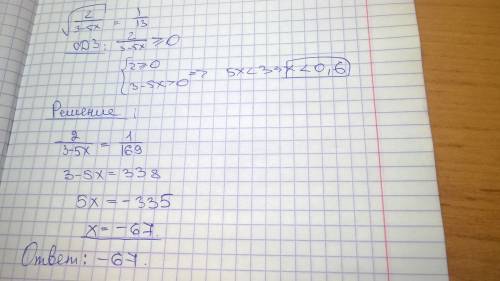 √(2/(3-5x)) = 1/13
ОДЗ: 2/(3-5x) ≥ 0
{2≥0
{3-5x>0 => 5x<3 => x<0,6
Решение:
2/(3-5x) = 1/169
3-5x = 338
5x = -335
x = -67.
Ответ: -67.